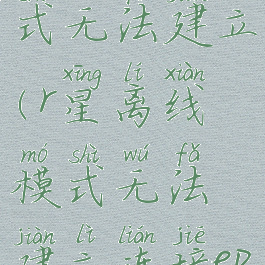 式无法建立
xīng lí xiàn
(r星离线
mó shì wú fǎ
模式无法
jiàn lì lián jiē
建立连接ep